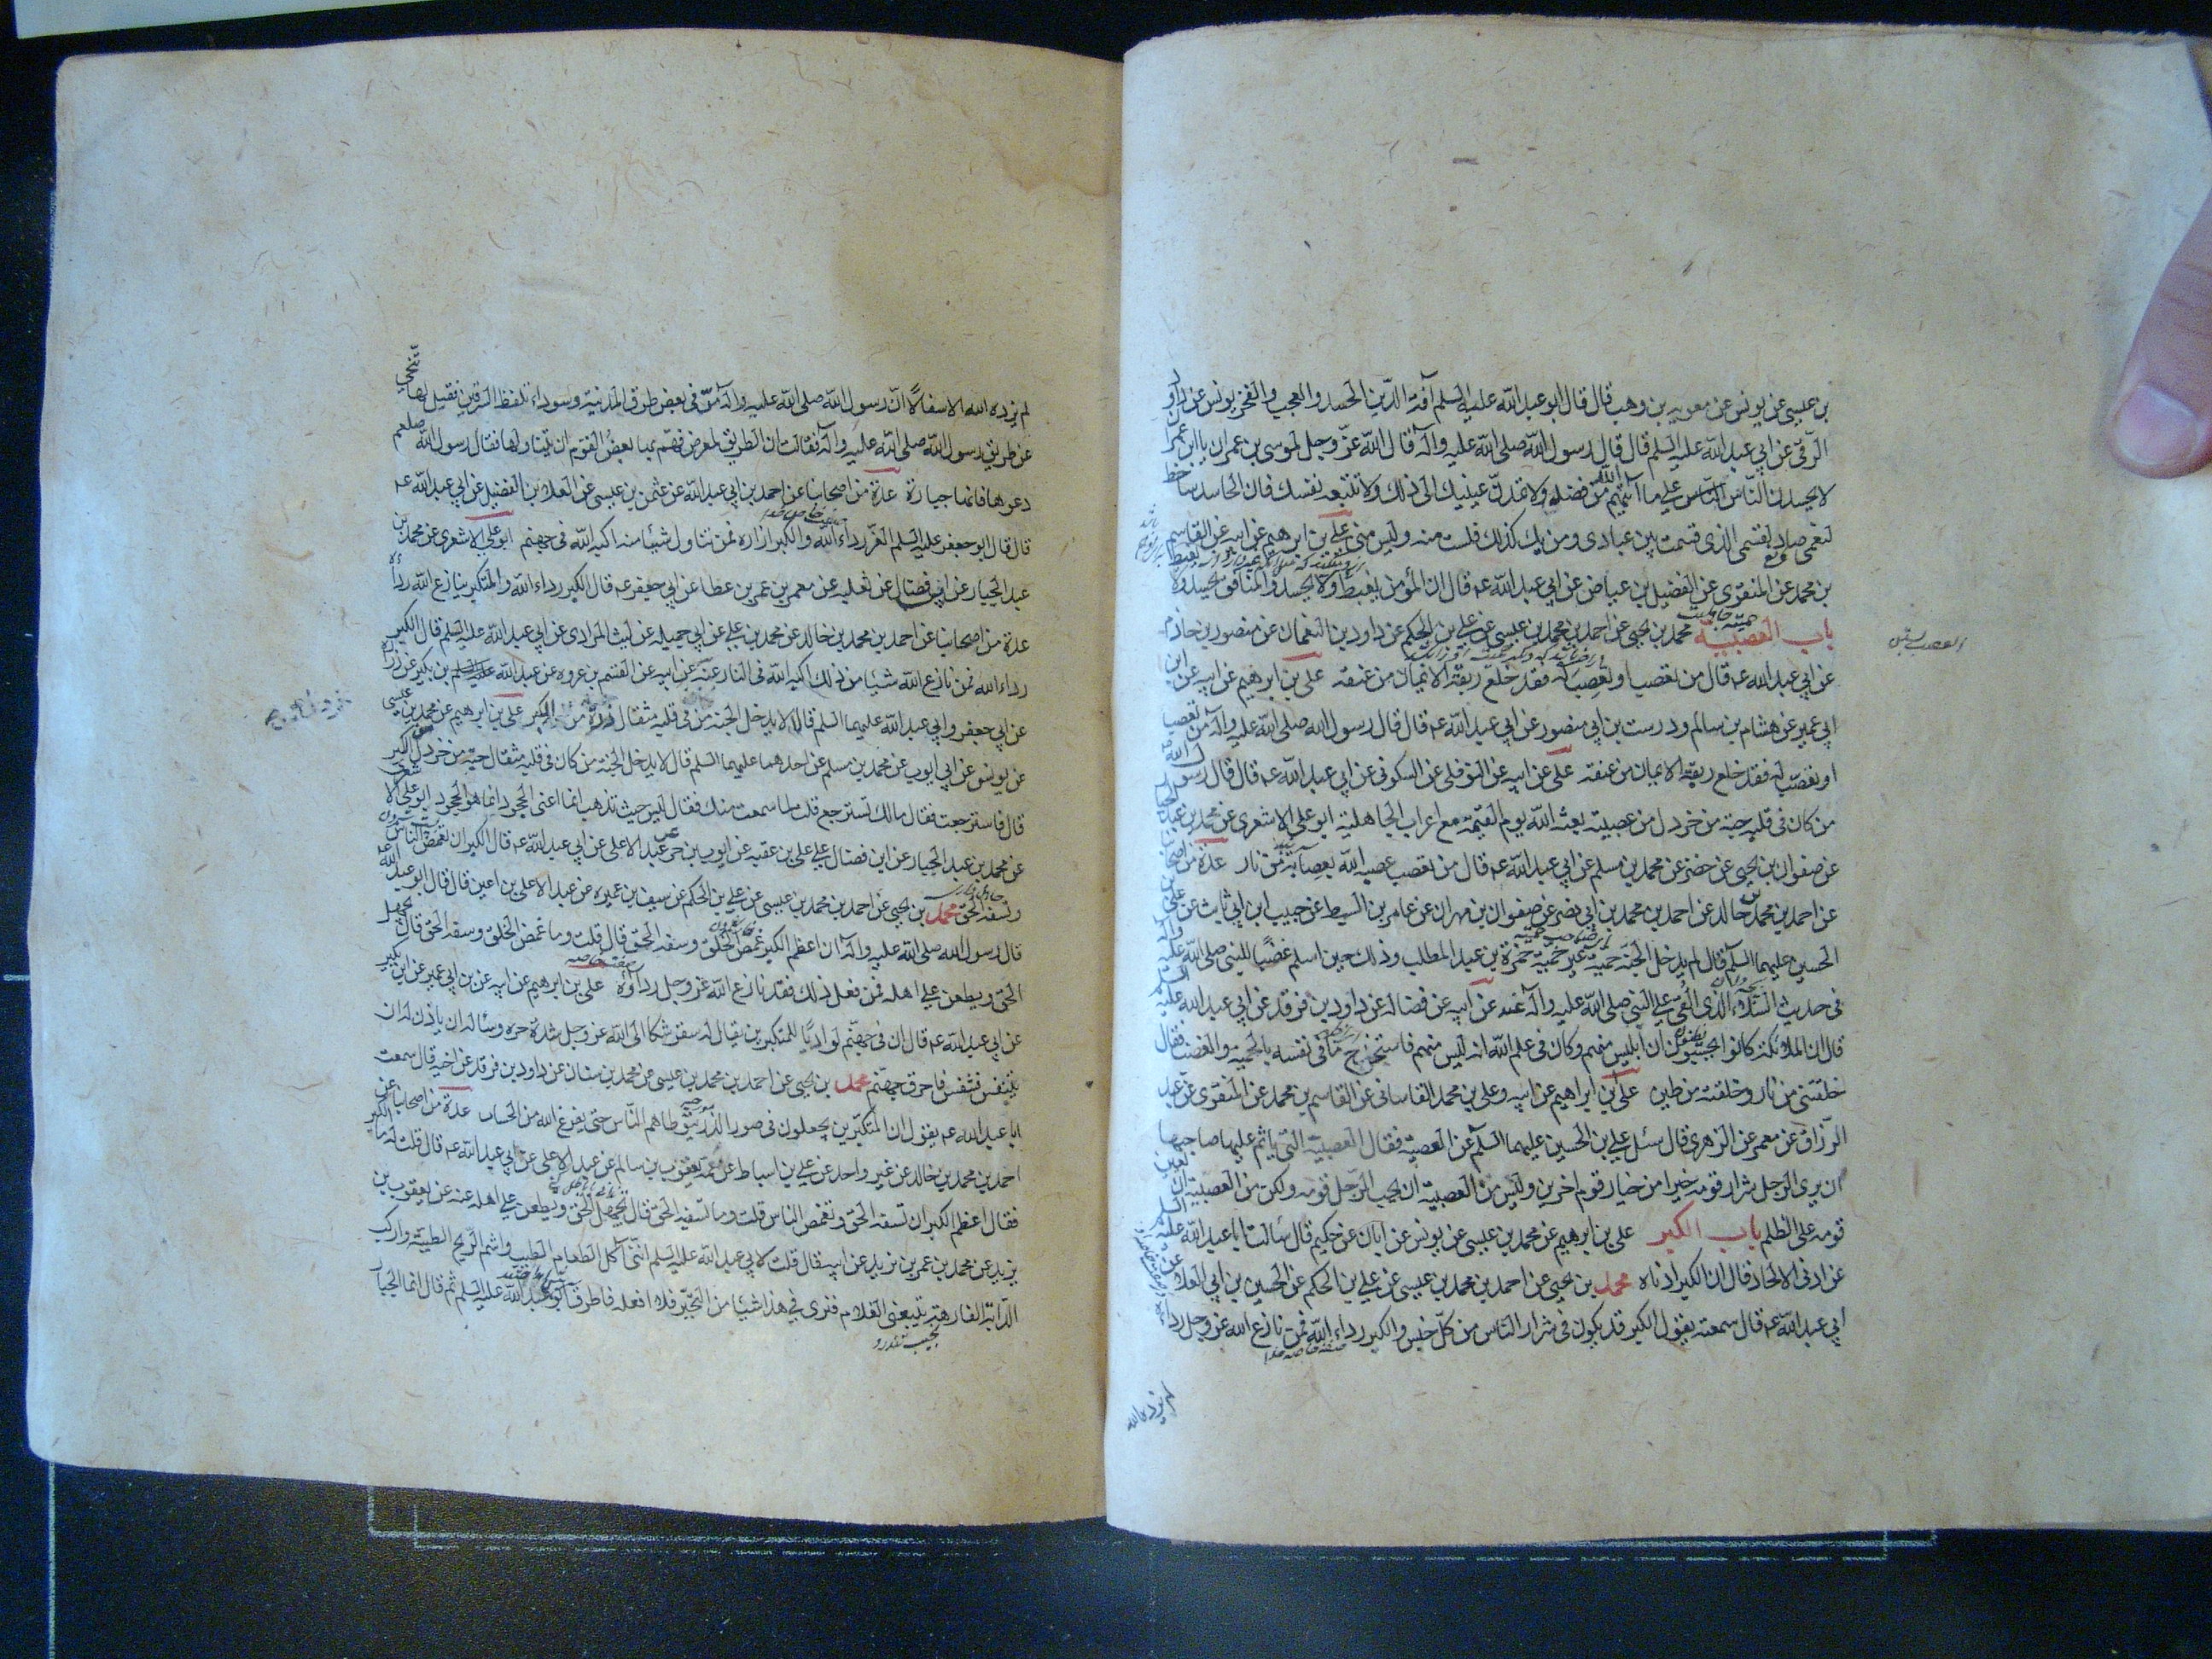 بن عيسى عن يونس عن معوية بن وهب قال قال ابو عبد الله عليه السلم آفة الدّين الحسد والعجب والفخر يونس عن داود
الرّقّى عن ابي عبد الله عليه السلم قال قال رسول الله صلى الله عليه وآله قال الله عزّ وجل لموسى بن عمران يا ابن عمران
لا تحسدن النّاس على ما آتيتهم من فضلى ولا تمدّن عينيك الى ذلك ولا تتبعه نفسك فان الحاسد ساخط
لنعمى صاد لقسمى الذى قسمت بين عبادى ومن يك كذلك فلست منه وليس منى على بن ابرهيم عن ابيه عن القاسم
بن محمد عن المنقرى عن الفضيل بن عياض عن ابي عبد الله عه قال ان المؤمن يغبط ولا يحسد والمنافق يحسد ولا يغبط
باب العصبية محمد بن يحيى عن احمد بن محمد بن عيسى عن على بن الحكم عن داود بن النعمان عن منصور بن حازم
عن ابي عبد الله عه قال من تعصب او تعصب له فقد خلع ربقة الايمان من عنقه على بن ابرهيم عن ابيه عن ابن
ابي عمير عن هشام بن سالم ودرست بن ابي منصور عن ابي عبد الله عه قال قال رسول الله صلى الله عليه وآله من تعصب
او تعصّب له فقد خلع ربقة الايمان من عنقه على عن ابيه عن النوفلى عن السكونى عن ابي عبد الله عه قال قال رسول الله
من كان فى قلبه حبة من خردل من عصبية بعثه الله يوم القيمة مع اعراب الجاهلية ابو على الاشعرى عن محمد بن عبد الجبار
عن صفوان بن يحيى عن خضر عن محمد بن مسلم عن ابي عبد الله عه قال من تعصب عصبه الله بعصابة من نار عدة من اصحابنا
عن احمد بن محمد بن خالد عن احمد بن محمد بن ابي نصر عن صفوان بن مهران عن عامر بن السيط عن حبيب ابن ابي ثابت عن على بن
الحسين عليهما السلم قال لم يدخل الجنة حمية غير حمية حمزة بن عبد المطلب وذلك حين اسلم غضبا للنبى صلى الله عليه وآله
فى حديث السّلاء الذى القى على النبى صلى الله عليه وآله عنه عن ابيه عن فضاله عن داود بن فرقد عن ابي عبد الله عليه السلم
قال ان الملائكة كانوا يحسبون ان ابليس منهم وكان فى علم الله انه ليس منهم فاستخرج ما فى نفسه بالحمية والغضب فقال
خلقتنى من نار وخلقته من طين على بن ابراهيم عن ابيه وعلى بن محمد القاسانى عن القاسم بن محمد عن المنقرى عن عبد
الرزّاق عن معمر عن الزهرى قال سئل على بن الحسين عليهما السلم عن العصبية فقال العصبية التى ياثم عليها صاحبها
ان يرى الرجل شرار قومه خيرا من خيار قوم اخرين وليس من العصبية ان يحب الرّجل قومه ولكن من العصبية ان يعين
قومه على الظلم باب الكبر على بن ابرهيم عن محمد بن عيسى عن يونس عن ابان عن حكيم قال سالت ابا عبد الله عليه السلم
عن ادنى الالحاد فقال ان الكبر ادناه محمد بن يحيى عن احمد بن محمد بن عيسى عن على بن الحكم عن الحسين بن ابي العلا عن
ابي عبد الله عه قال سمعته يقول الكبر قد يكون فى شرار النّاس من كلّ جنس والكبر رداء الله فمن نازع الله عز وجل رداءه
لم يزده الله
لم يزده الله الا سفالًا انّ رسول الله صلى الله عليه وآله مرّ فى بعض طرق المدينة وسوداء تلقط السّرقين فقيل لها تنحّى
عن طريق رسول الله صلى الله عليه وآله فقالت ان الطريق لمعرض فهمّ بها بعض القوم ان يتناولها فقال رسول الله صلعم
دعوها فانها جبارة عدة من اصحابنا عن احمد بن ابي عبد الله عن عثمن بن عيسى عن العلا بن الفضيل عن ابي عبد الله عه
قال قال ابو جعفر عليه السلم العزّ رداء الله والكبر ازاره فمن تناول شيئا منه اكبه الله فى جهنم ابو على الاشعرى عن محمد بن
عبد الجبار عن ابن فضال عن ثعلبه عن معمر بن عمر بن عطا عن ابي جعفر عه قال الكبر رداء الله والمتكبر ينازع الله رداءه
عدة من اصحابنا عن احمد بن محمد بن خالد عن محمد بن على عن ابي جميله عن ليث المرادى عن ابي عبد الله عليه السلم قال الكبر
رداء الله فمن نازع الله شيئا من ذلك اكبه الله فى النار عنه عن ابيه عن القسم بن عروه عن عبد الله بن بكير عن زرارة
عن ابي جعفر وابي عبد الله عليهما السلم قالا لا يدخل الجنة من فى قلبه مثقال ذرة من الكبر على بن ابرهيم عن محمد بن عيسى
عن يونس عن ابي ايوب عن محمد بن مسلم عن احدهما عليهما السلم قال لا يدخل الجنة من كان فى قلبه مثقال حبة من خردل من الكبر
قال فاسترجعت فقال مالك تسترجع قلت لما سمعت منك فقال ليس حيث تذهب انما اعنى الجحود انما هو الجحود ابو على الاشعرى
عن محمد بن عبد الجبار عن ابن فضال عن على بن عقبه عن ايوب بن حر عن عبد الاعلى عن ابي عبد الله عه قال الكبر ان تغمص الناس
وتسفه الحق محمد بن يحيى عن احمد بن محمد بن عيسى عن على بن الحكم عن سيف بن عميره عن عبد الاعلى بن اعين قال قال ابو عبد الله عه
قال رسول الله صلى الله عليه وآله ان اعظم الكبر غمص الخلق وسفه الحق قال قلت وما غمص الخلق وسفه الحق قال يجهل
الحق ويطعن على اهله فمن فعل ذلك فقد نازع الله عز وجل رداؤه على بن ابرهيم عن ابيه عن بن ابي عمير عن ابن بكير
عن ابي عبد الله عه قال ان فى جهنّم لواديًا للمتكبرين يقال له سقر شكا الى الله عز وجل شدة حره وساله ان ياذن له ان
يتنفس فتنفس فاحرق جهنّم محمد بن يحيى عن احمد بن محمد بن عيسى عن محمد بن سنان عن داود بن فرقد عن اخيه قال سمعت
ابا عبد الله عه يقول ان المتكبّرين يجعلون فى صور الذّر يتوطاهم النّاس حتى يفرغ الله من الحساب عدة من اصحابنا عن
احمد بن محمد بن خالد عن غير واحد عن على بن اسباط عن عمه يعقوب بن سالم عن عبد الاعلى عن ابي عبد الله عه قال قلت له ما الكبر
فقال اعظم الكبر ان تسفه الحق وتغمص الناس قلت وما تسفيه الحقّ قال تجهل الحق وتطعن على اهله عنه عن يعقوب بن
يزيد عن محمد بن عمر بن يزيد عن ابيه قال قلت لابي عبد الله عليه السلم انّنى آكل الطعام الطيب واشم الرّيح الطيبة واركب
الدّابة الفارهة ويتبعنى الغلام فترى فى هذا شيئا من التجبّر فلا افعله فاطرق ابو عبد الله عليه السلم ثم قال انما الجبار